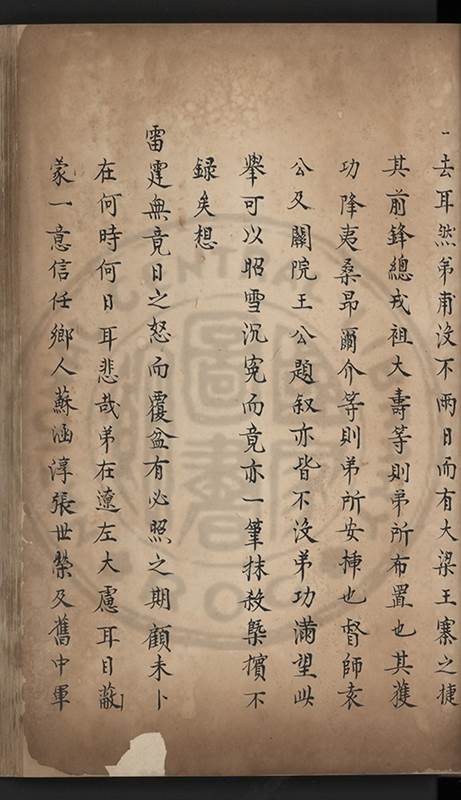 一去耳然弟甫沒不兩日而有大梁王寨之捷
其前鋒總戎祖大壽等則弟所布置也其獲
功降夷桑昂爾介等則弟所安揷也督師袁
公及關院王公題叙亦皆不沒弟功滿望此
舉可以昭雪沉寃而竟亦一筆抹殺槩擯不
録矣想
雷霆無竟日之怒而覆盆有必照之期顧未卜
在何時何日耳悲哉弟在遼左大慮耳目蔽
蒙一意信任鄉人蘇涵淳張世榮及舊中軍